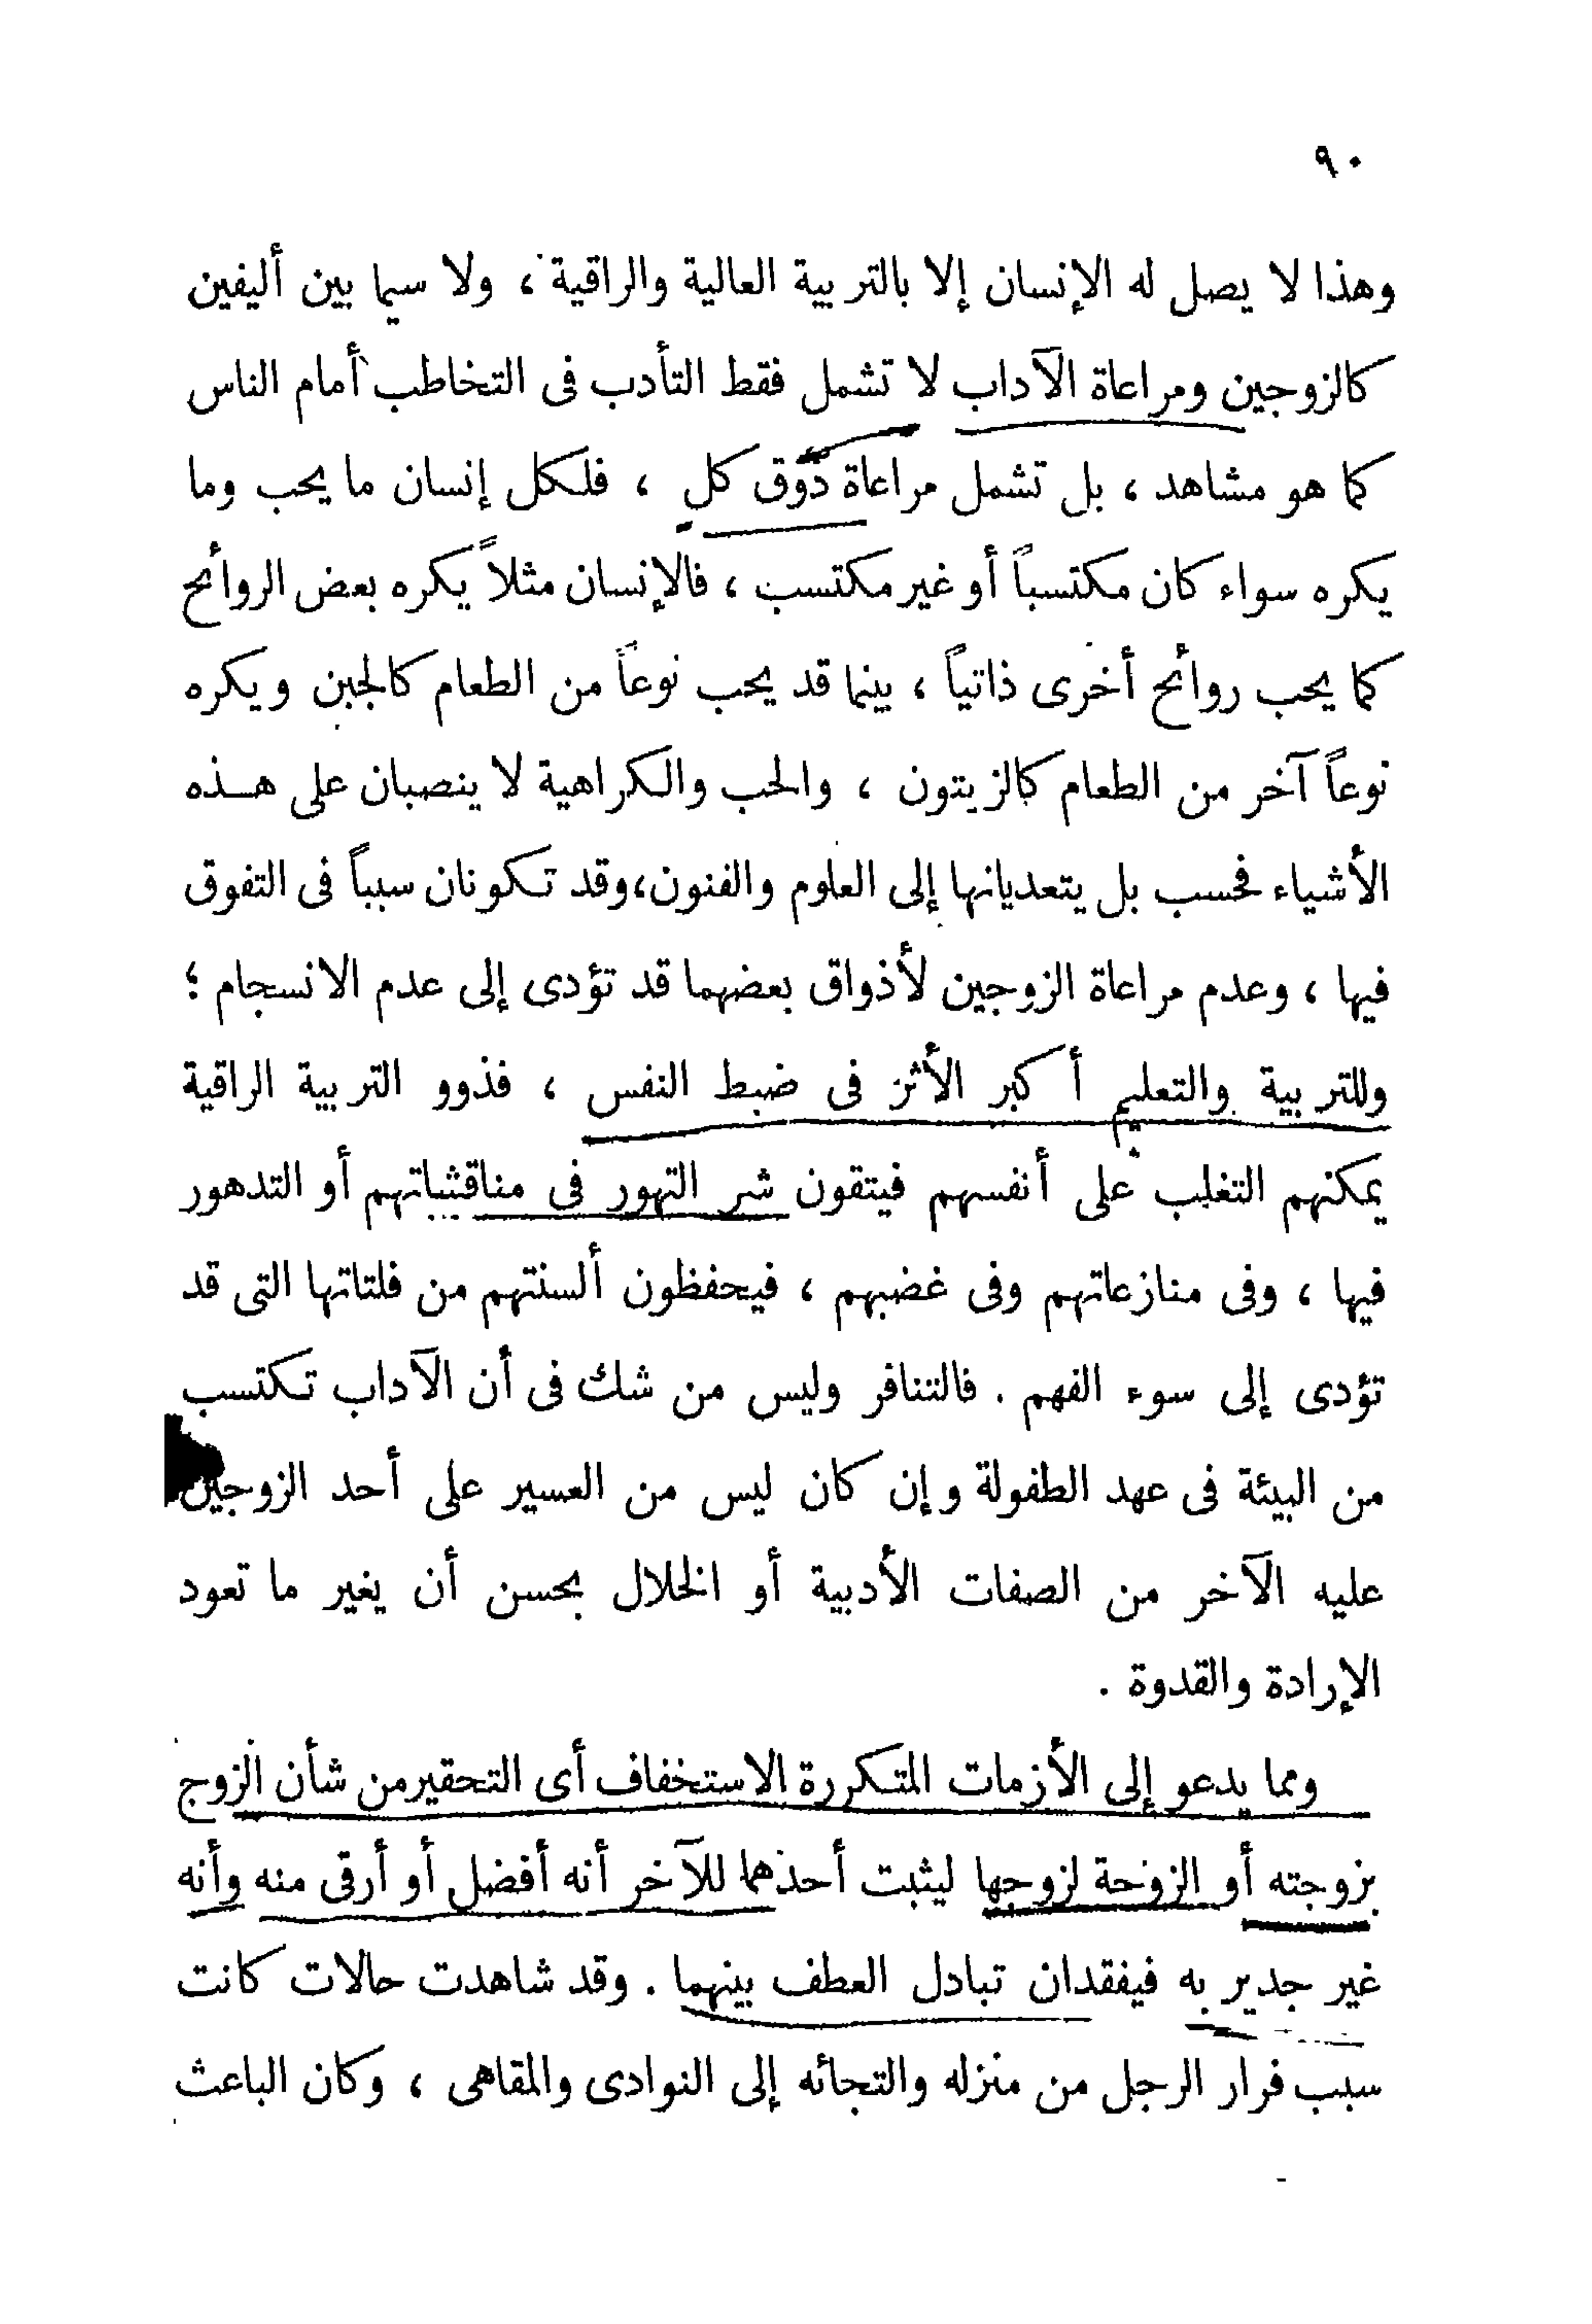 ٩٠
وهذا لا يصل له الإنسان إلا بالتربية العالية والراقية ، ولا سيما بين أليفين
كالزوجين ومراعاة الآداب لا تشمل فقط التأدب فى التخاطب أمام الناس
كما هو مشاهد ، بل تشمل مراعاة ذوق كل ، فلكل إنسان ما يحب وما
يكره سواء كان مكتسباً أو غير مكتسب ، فالإنسان مثلاً يكره بعض الروائح
كما يحب روائح أخرى ذاتياً ، بينما قد يحب نوعاً من الطعام كالجبن ويكره
نوعاً آخر من الطعام كالزيتون ، والحب والكراهية لا ينصبان على هذه
الأشياء فحسب بل يتعديانها إلى العلوم والفنون، وقد تكونان سبباً فى التفوق
فيها ، وعدم مراعاة الزوجين لأذواق بعضهما قد تؤدى إلى عدم الانسجام ؛
وللتربية والتعليم أكبر الأثر فى ضبط النفس ، فذوو التربية الراقية
يمكنهم التغلب على أنفسهم فيتقون شر التهور فى أو التدهور
فيها ، وفى منازعاتهم وفى غضبهم ، فيحفظون ألسنتهم من فلتاتها التى قد
تؤدى إلى سوء الفهم . فالتنافر وليس من شك فى أن الآداب تكتسب
من البيئة فى عهد الطفولة وإن كان ليس من العسير على أحد الزوجين
عليه الآخر من الصفات الأدبية أو الخلال بحسن أن يغير ما تعود
الإرادة والقدوة .
ومما يدعو إلى الأزمات المتكررة الاستخفاف أى التحقير من شأن الزوج
بزوجته أو الزوجة لزوجها ليثبت أحدهما للآخر أنه أفضل أو أرقى منه وأنه
غير جدير به فيفقدان تبادل العطف بينهما . وقد شاهدت حالات كانت
سبب فرار الرجل من منزله والتجائه إلى النوادى والمقاهى ، وكان الباعث